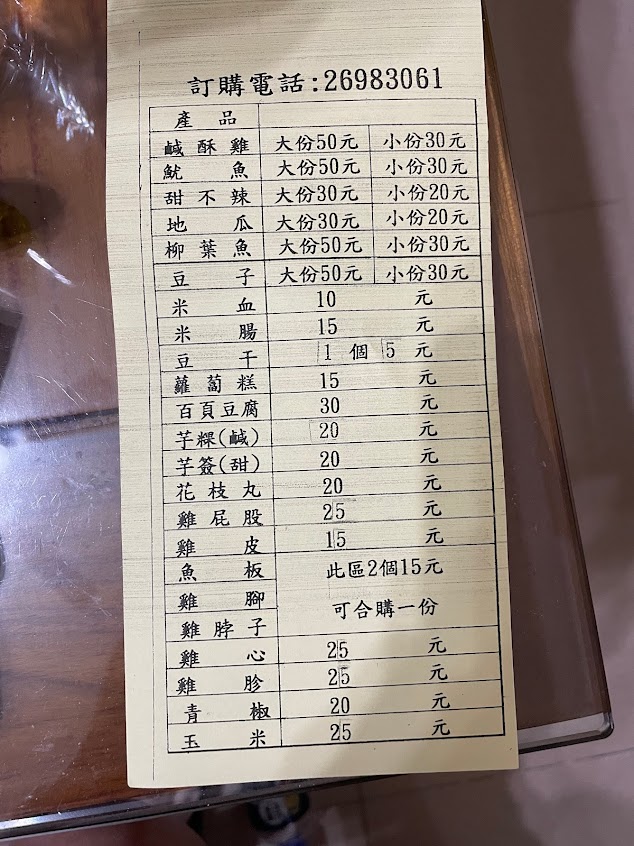 訂購電話:26983061
產品
鹹酥雞 大份50元 小份30元
魷魚 大份50元 小份30元
甜不辣 大份30元 小份20元
地瓜 大份30元 小份20元
柳葉魚 大份50元 小份30元
豆子 大份50元 小份30元
米血 10 元
米腸 15 元
豆干 1個5元
蘿蔔糕 15 元
百頁豆腐 30 元
芋粿(鹹) 20 元
芋簽(甜) 20 元
花枝丸 20 元
雞屁股 25 元
雞皮 15 元
魚板 此區2個15元
雞腳 可合購一份
雞脖子
雞心 25 元
雞胗 25 元
青椒 20 元
玉米 25 元